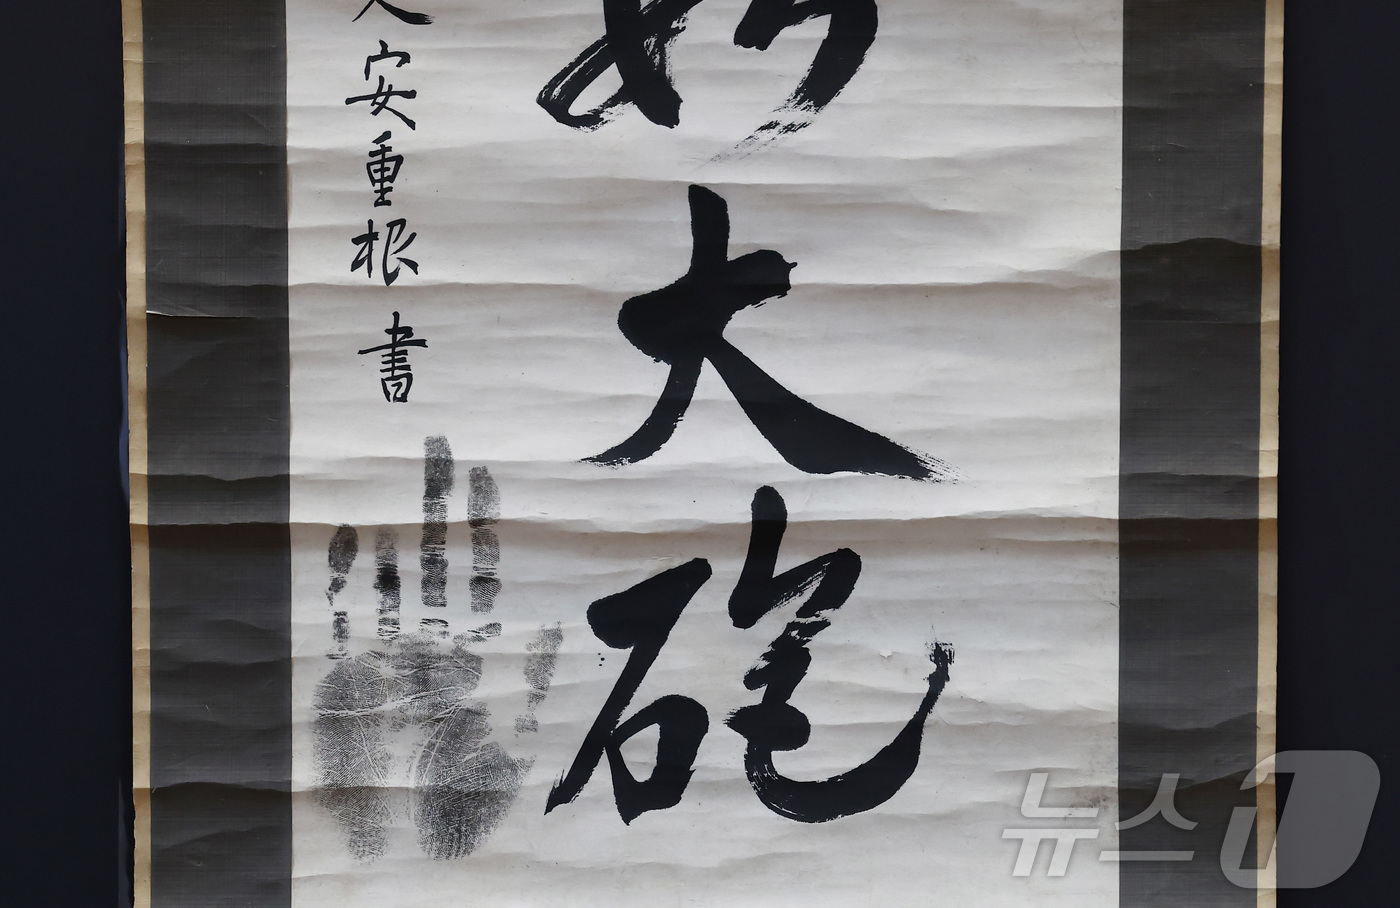 大砲
人安重根 書
뉴스1